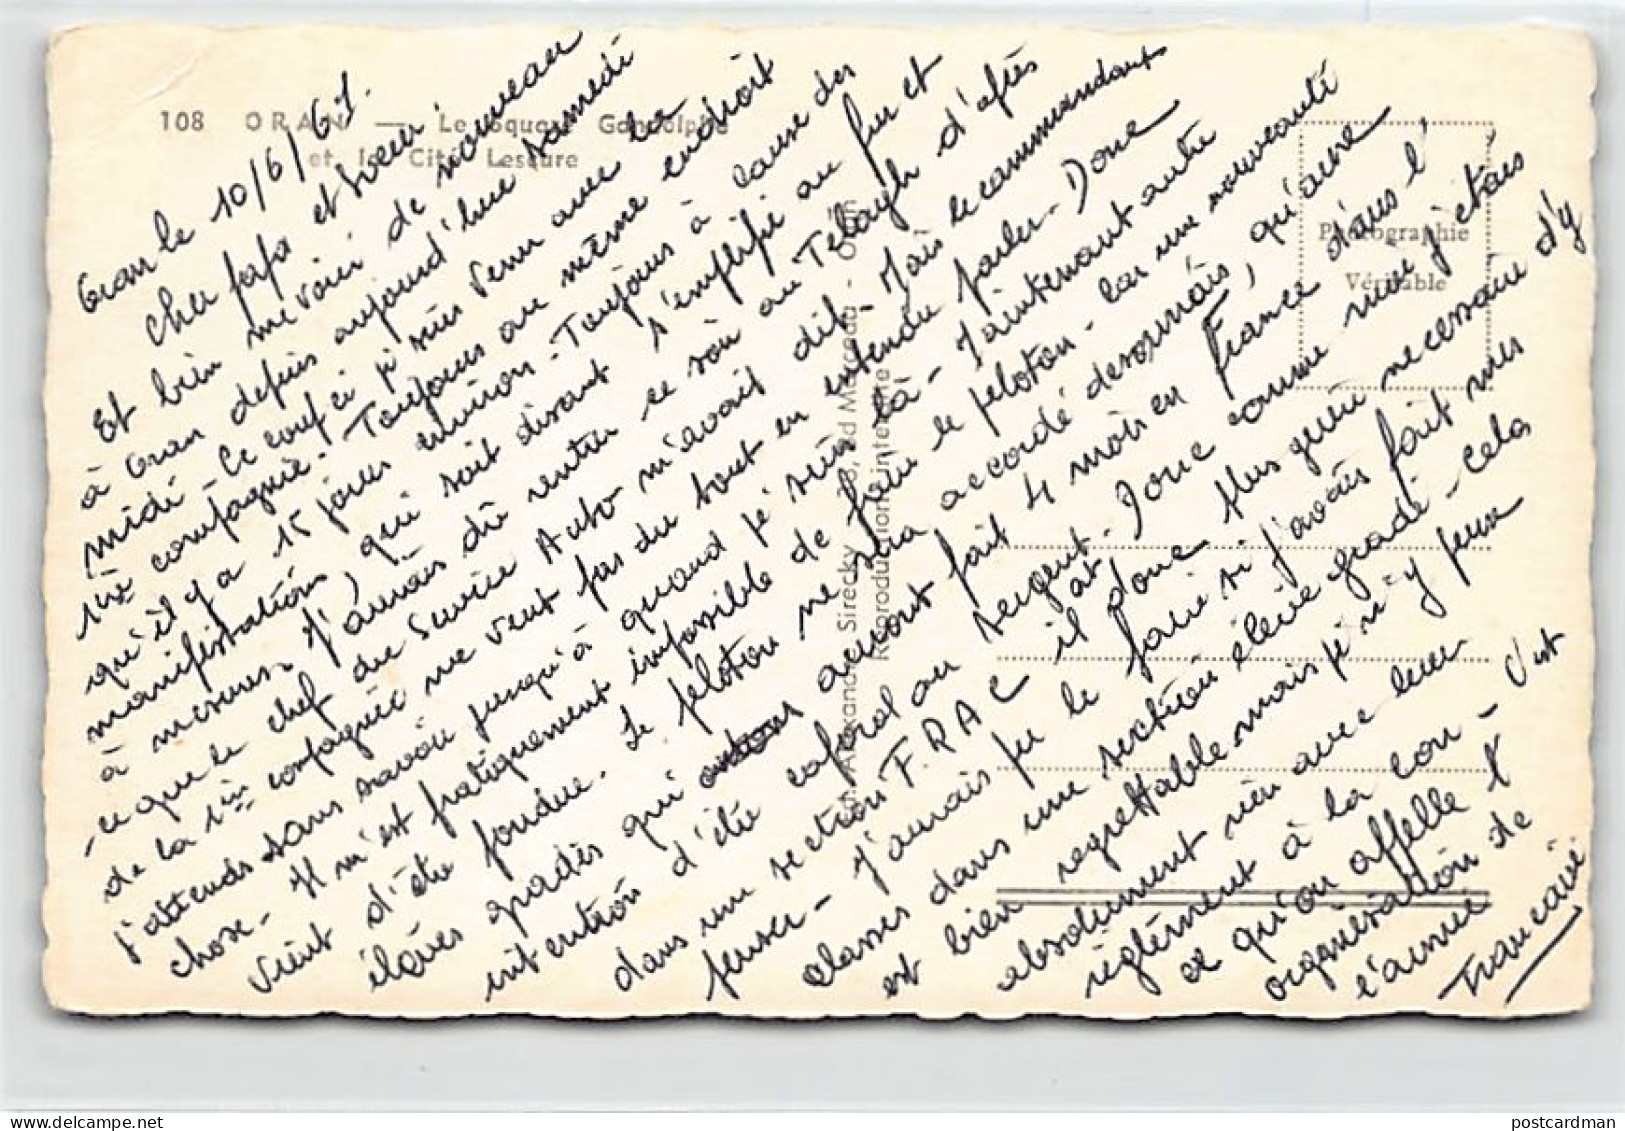 108 ORAN — Le Square Gandolphe
et la Cité Lescure
Photographie
Véritable
Alexandre Sirecky 26, Bd Marceau - Oran
Reproduction interdite
Oran le 10/6/61.
Cher papa et
Et bien me voici de nouveau
à Oran depuis aujourd'hui samedi
midi - Ce coup ci je suis venu avec la
1ère compagnie - Toujours au même endroit
qu'il y a 15 jours environ - Toujours à cause des
manifestations, qui soit disant s'emplifie au fur et
à mesures. J'aurais dû rentrer ce soir au Telagh d'après
ce que le chef du Service Auto m'avait dit - Mais le commandant
de la 1ère compagnie ne veut pas du tout en entendu parler - Donc
j'attends sans savoir jusqu'à quand je suis là - Maintenant autre
chose - Il m'est pratiquement impossible de faire le peloton - Car une nouveauté
vient d'être pondue. Le peloton ne sera accordé desormais, qu'aux
élèves gradés qui auront fait 4 mois en France dans l'
intention d'être caporal ou sergent. Donc comme moi j'étais
dans un section F.R.A.C. il donc plus guère necessaire d'y
penser - J'aurais pu le faire si j'avais fait mes
classes dans une section élève gradé - Cela
est bien regrettable mais je n'y peux
absolument rien avec leur
réglement à la con - C'est
ce qu'on appelle l'
organisation de
l'armée
Francavié
postcardman